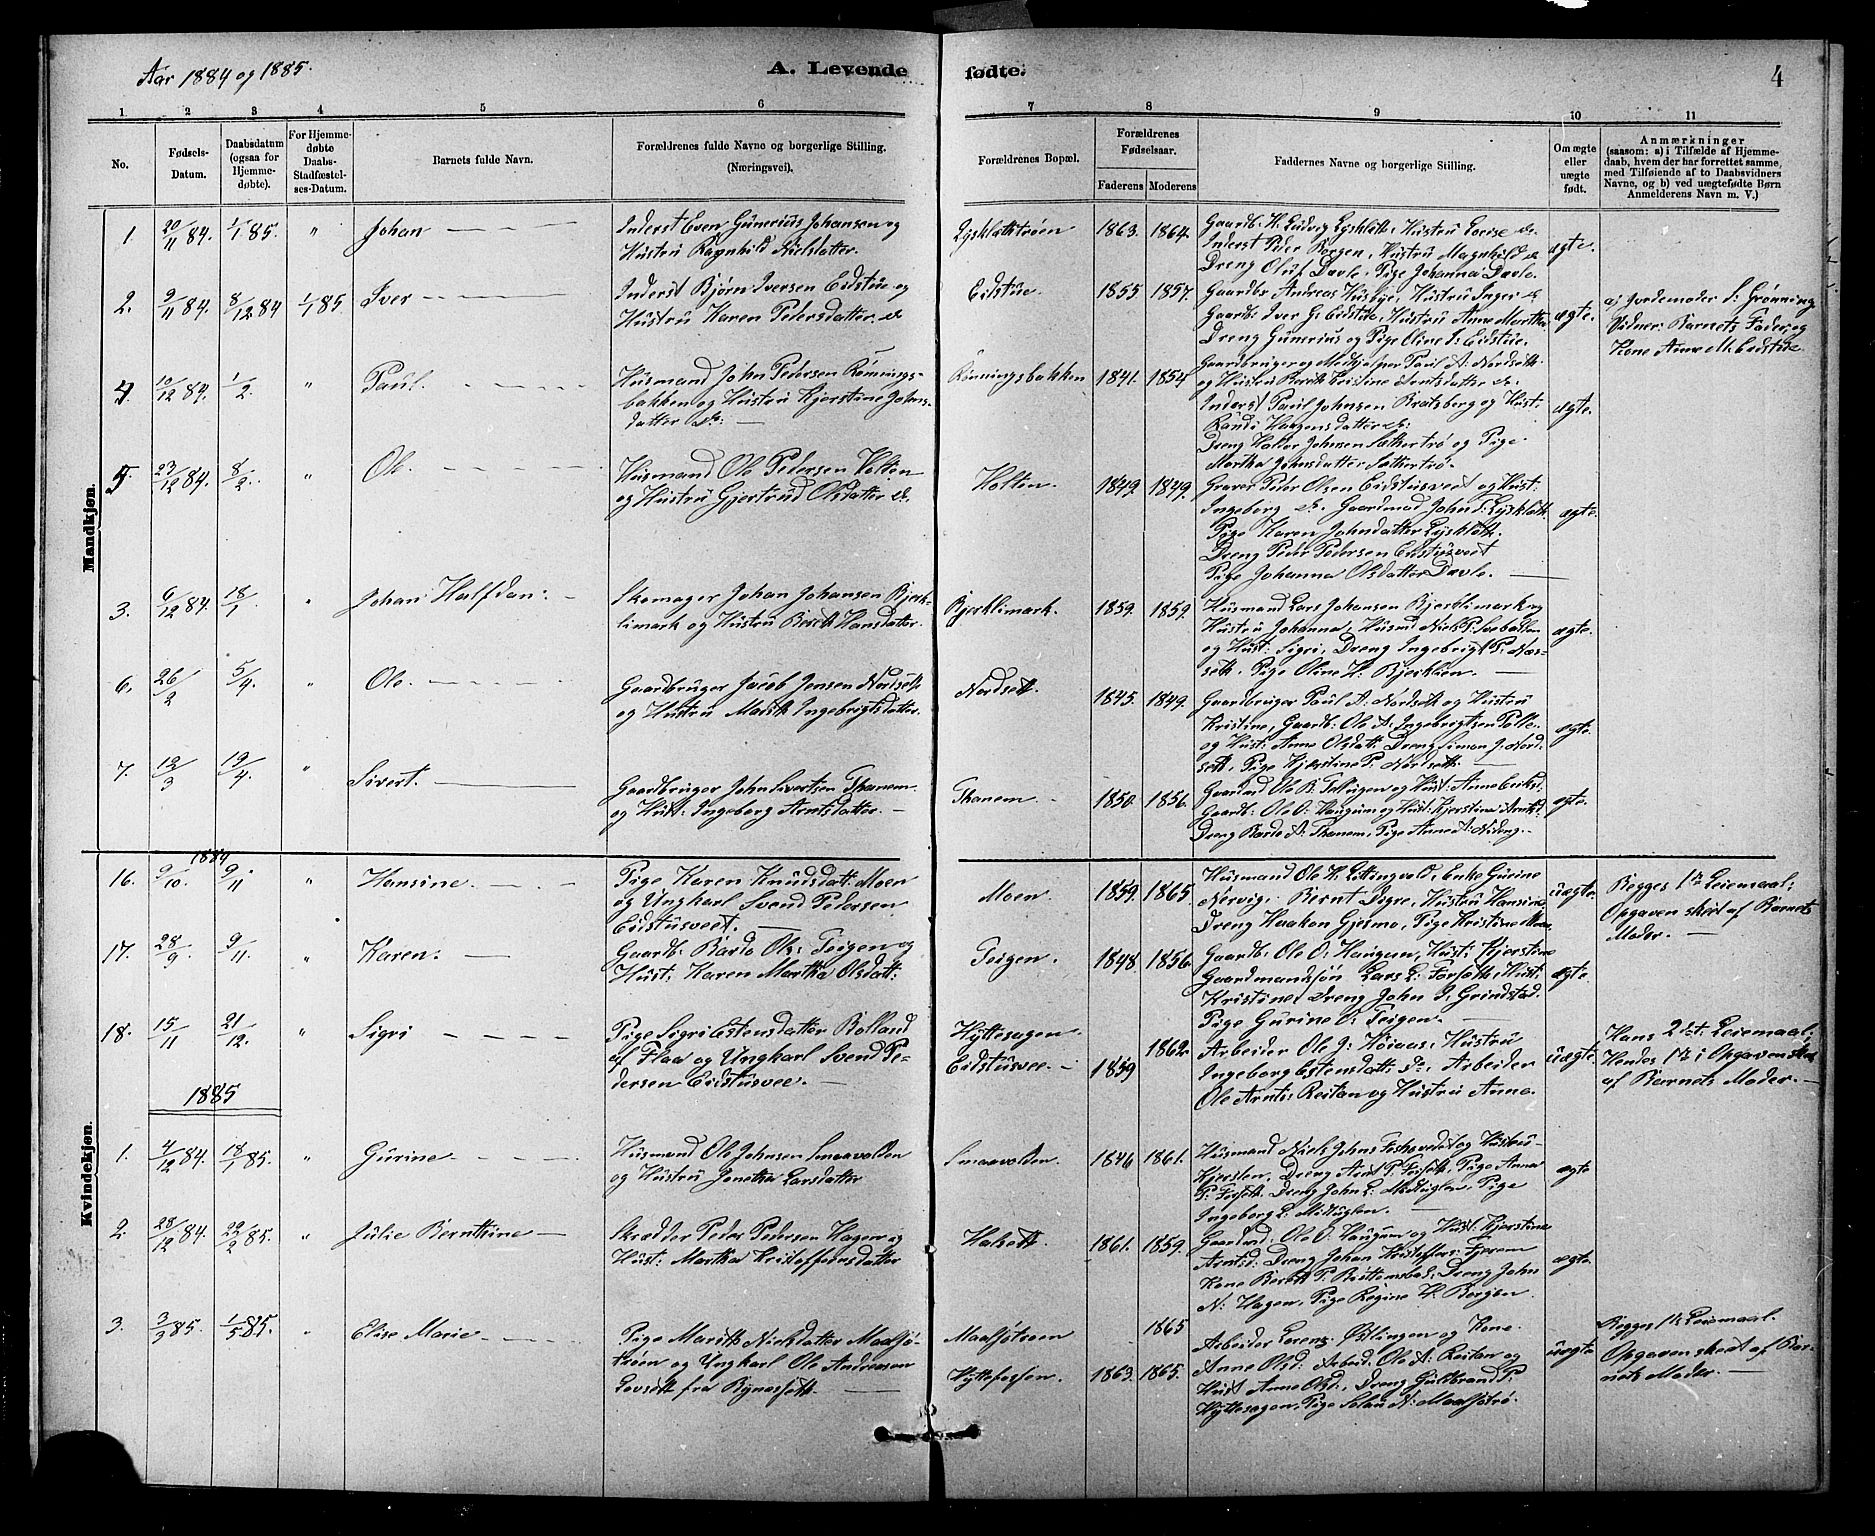 Aar 1884 og 1885.
A. Levende fødte.
4
1. 2 3 4 5 6 7 8 9 10 11
No.
Fødsels-Datum.
Daabsdatum (ogsaa for Hjemmedøbte).
For Hjemmedøbte Daabs-Stadfæstelses-Datum.
Barnets fulde Navn.
Forældrenes fulde Navne og borgerlige Stilling.
(Næringsvei).
Forældrenes Bopæl.
Forældrenes Fødselsaar.
Faderens Moderens
Faddernes Navne og borgerlige Stilling.
Om ægte eller uægte født.
Anmærkninger
(saasom: a) i Tilfælde af Hjemmedaab, hvem der har forrettet samme, med Tilføiende af to Daabsvidners Navne, og b) ved uægtefødte Børn Anmelderens Navn m. V.)
Mandkjøn.
1. 20/11 84. 1/1 85. " Johan
Inderst Even Gunerius Johansen og
Hustru Ragnhild Nielsdatter.
Lysklættrøen 1863. 1864.
Gaardb: H. Ludvig Lysklætt, Hustru Loerise do.
Inderst Peder Borgen, Hustru Magnhild do
Dreng Oluf Davle, Pige Johanna Davle.
ægte.
2. 9/11 84. 8/12 84 1/1 85 Iver
Inderst Bjørn Iversen Eidstue og
Hustru Karen Pedersdatter do
Eidstue 1855 1857.
Gaardbr Andreas Husbye, Hustru Inger do
Gaardb: Iver G. Eidstue, Hustru Anne Martha
Dreng Gunerius og Pige Oline I. Eidstue.
ægte.
a) Jordemoder S. Grønning
Vidner: Barnets Fader og
Kone Anne M. Eidstue
4 10/12 84. 1/2. " Paul.
Husmand John Pedersen Rønnings-
bakken og Hustru Kjerstine Johns-
datter do:
Rønningsbakken 1841. 1854
Gaardbruger og Medhjelper Paul A. Nordsett
og Hustru Berith Kristine Arntsdatter do:
Inderst Paul Johnsen Bratsberg og Hust.
Randi Haagensdatter do:
Dreng Halvor Johnsen Sættertrø og Pige
Martha Johnsdatter Sættertrø.
ægte.
5. 23/12 84. 8/2. " Ole
Husmand Ole Pedersen Holten
og Hustru Gjertrud Olsdatter do.
Holten. 1849. 1849.
Graver Peder Olsen Eidstusveet og Hust:
Ingeborg do. Gaardmand John S. Lysklætt.
Pige Karen Johnsdatter Lysklætt.
Dreng Peder Pedersen Eidstusveet
Pige Johanna Olsdatter Davle.
ægte.
3. 6/12 84. 18/1. " Johan Halfdan:
Skomager Johan Johansen Bjerk-
limark og Hustru Berit Hansdatter.
Bjerklimark. 1859. 1859.
Husmand Lars Johansen Bjerklimark og
Hustru Johanna, Husmd Niels P. Svebakken
og Hust: Sigri, Dreng Ingebrigt P. Nor-
sett. Pige Oline H. Bjerklien.
ægte.
6. 26/2 5/4. " Ole.
Gaardbruger Jacob Jensen Nordsett
og Hustru Marith Ingebrigtsdatter.
Nordsett. 1845. 1849.
Gaardbruger Paul A. Nordsett og Hustru
Kristine, Gaardb: Ole A. Ingebrigtsen
og Hust: Anne Olsdatt. Dreng Simon J. Nord-
sett, Pige Kjerstine P. Nordsett.
ægte.
7. 12/3 19/4. " Sivert.
Gaardbruger John Sivertsen Thanem
og Hust: Ingeborg Arntsdatter.
Thanem. 1850. 1856.
Gaardmd Ole B. Tellugen og Hust Anne Eriksd.
Gaardb: Ole O. Haugum og Hust: Kjerstine Arntsd
Dreng Bardo A: Thanem, Pige Anne A: Nideng.
ægte.
Kvindekjøn.
1884
16. 9/10. 9/11 " Hansine.
Pige Karen Knudsdatt: Moen
og Ungkarl Svend Pedersen
Eidstusveet.
Moen 1859. 1865.
Husmand Ole H. Litlingvold, Enke Gurine
Nervig, Bernt Digre, Hustru Hansine
Dreng Haakon Gjesmo, Pige Kristine Moen.
uægte.
Begges 1te Leiermaal.
Opgaven skeet af Barnets
Moder.
17. 28/9 9/11. " Karen.
Gaardb: Bardo Ols: Teigen og
Hust: Karen Martha Olsdatt:
Teigen. 1848 1856.
Gaardb: Ole O. Haugum, Hust: Kjerstine
Gaardmandssøn Lars L: Forseth, Hust:
Kristine, Dreng John I. Grindstad.
Pige Gurine O: Teigen.
ægte.
18. 15/11 21/12. " Sigri
Pige Sigri Estensdatter Bolland
af Flaa og Ungkarl Svend Pe-
dersen Eidstusvee.
Hyttesagen
Eidstusvee. 1859 1862.
Arbeider Ole J: Høiaas, Hustru
Ingeborg Estensdatt: Do, Arbeider
Ole Arnts: Reitan og Hustru Anne.
uægte.
Hans 2det Leiermaal,
Hendes 1te; Opgaven skeet
af Barnets Moder.
1885
1. 4/12 84. 18/1 85. " Gurine
Husmand Ole Johnsen Smaavolden
og Hustru Jonetha Larsdatter
Smaavolden. 1846 1861.
Husmand Niels Johns: Foshveidet og Hustru
Kjersten, Dreng Arnt P. Forseth, Pige Anna
P. Forseth, Dreng John L. Midtuglen, Pige
Ingeborg L. Midtuglen.
ægte
2. 28/12 84. 22/2 85. " Julie Bernthine
Skrædder Peder Pedersen Hagen og
Hust: Martha Kristoffersdatter
Halsett. 1861. 1859.
Gaardmd: Ole O. Haugum og Hust: Kjerstine
Arntsd: Dreng Johan Kristoffers: Fjeren
Kone Berith P. Bostomsbad, Dreng John
N: Hagen, Pige Regine H. Borgen.
ægte.
3. 3/3 85. 1/5 85. " Elise Marie
Pige Marith Nielsdatter Maalsø-
trøen og Ungkarl Ole Andersen
Lovsett fra Bynesset.
Maalsøtroen 1865
Hyttefossen. 1863. 1865.
Arbeider Lorens Østlingen og Kone
Anne Olsd: Arbeid: Ole A: Reitan og
Hust Anne Olsd., Dreng Guldbrand P.
Hyttesagen, Pige Solau N: Maalsøtrø.
uægte
Begges 1te Leiermaal.
Opgaven skeet af Bar-
nets Moder.